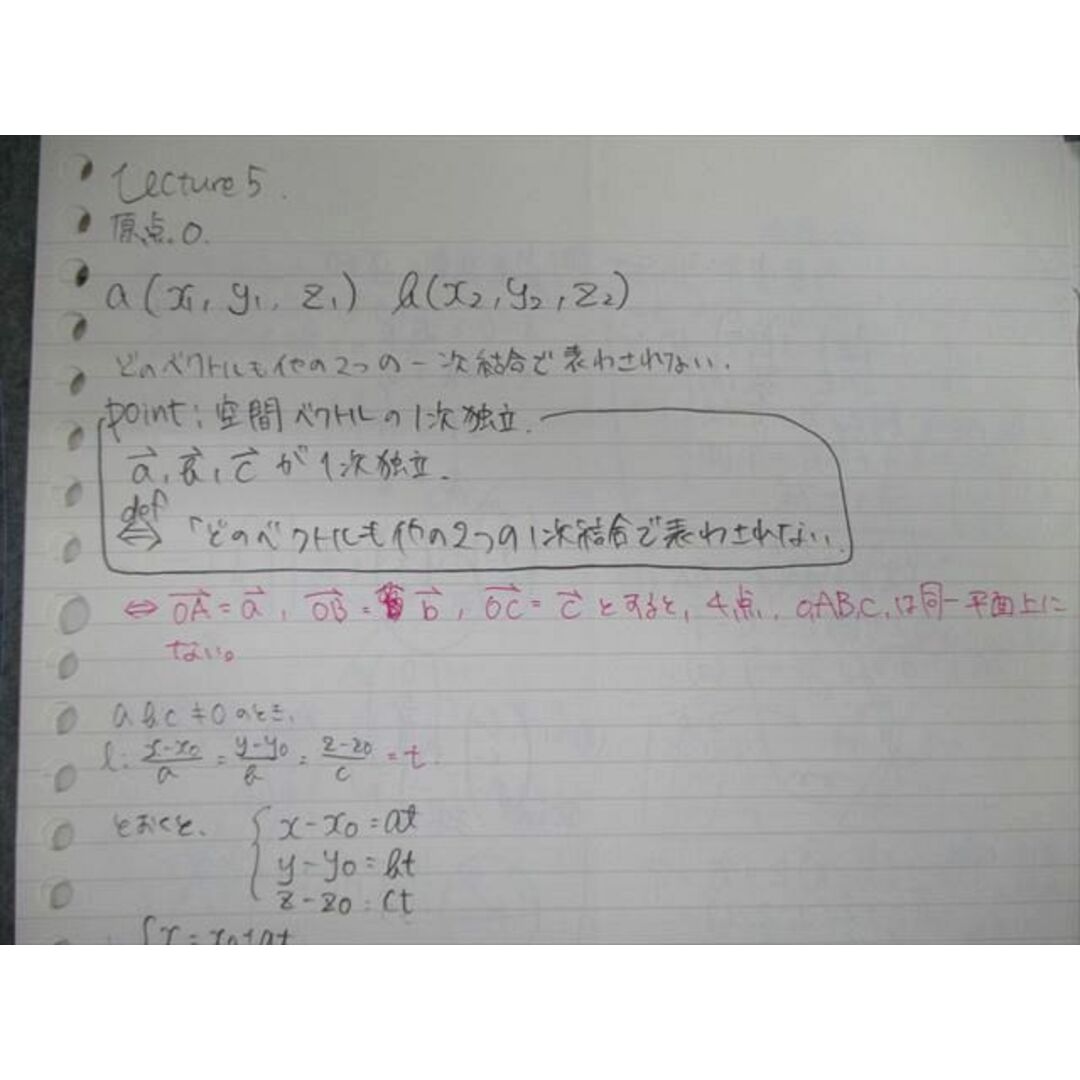 Lecture 5.
原点.O.
a(x₁, y₁, z₁) b(x₂, y₂, z₂)
どのベクトルも他の2つの一次結合で表わされない.
point: 空間ベクトルの1次独立.
a⃗, b⃗, c⃗ が1次独立.
def
⇔ 「どのベクトルも他の2つの1次結合で表わされない.
⇔ OA⃗ = a⃗, OB⃗ = b⃗, OC⃗ = c⃗ とすると, 4点. O,A,B,C, は同一平面上に
ない。
abc≠0のとき,
l: (x-x₀)/a = (y-y₀)/b = (z-z₀)/c = t.
とおくと、 { x-x₀ = at
y-y₀ = bt
z-z₀ = ct
{ x = x₀+at